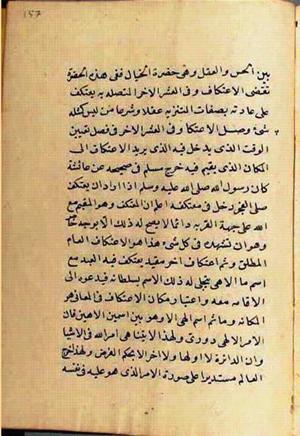 ١٥٧
بين الحس والعقل وهو حضرة الخيال ففى هذه الحضرة
تقضى الاعتكاف وفى العشر الاخر لتصله به يعتكف
على عادته بصفات التنزيه عقلا وشرعا من ليس كمثله
شئ وصل الاعتكاف فى العشر الاخر فى فصل تعيين
الوقت الذى يدخل فيه الذى يريد الاعتكاف الى
المكان الذى يقيم فيه خرج مسلم فى صحيحه عن عائشة
كان رسول الله صلى الله عليه وسلم اذا اراد ان يعتكف
صلى الفجر ثم دخل فى معتكفه اعلم ان المعتكف وهو المقيم مع
الله على جهة القربة دائما لا يصح له ذلك الا بوجه خاص
وهو ان تشهده فى كل شئ هذا هو الاعتكاف العام
المطلق وثم اعتكاف اخر مقيد يعتكف فيه العبد مع
اسم ما الاهى يتجلى له ذلك الاسم بسلطانه فيدعوه الى
الاقامه معه واعتبار مكان الاعتكاف فى المعانى هو
المكانه وما ثم اسم الهى الا وهو بين اسمين الاهيين فان
الامر الالهى دورى ولهذا لا يتناهى امر الله فى الاشيا
وان الدائرة لا اول لها ولا اخر الا بحكم الفرض ولهذا خرج
العالم مستديرا على صورة الامر الذى هو عليه فى نفسه